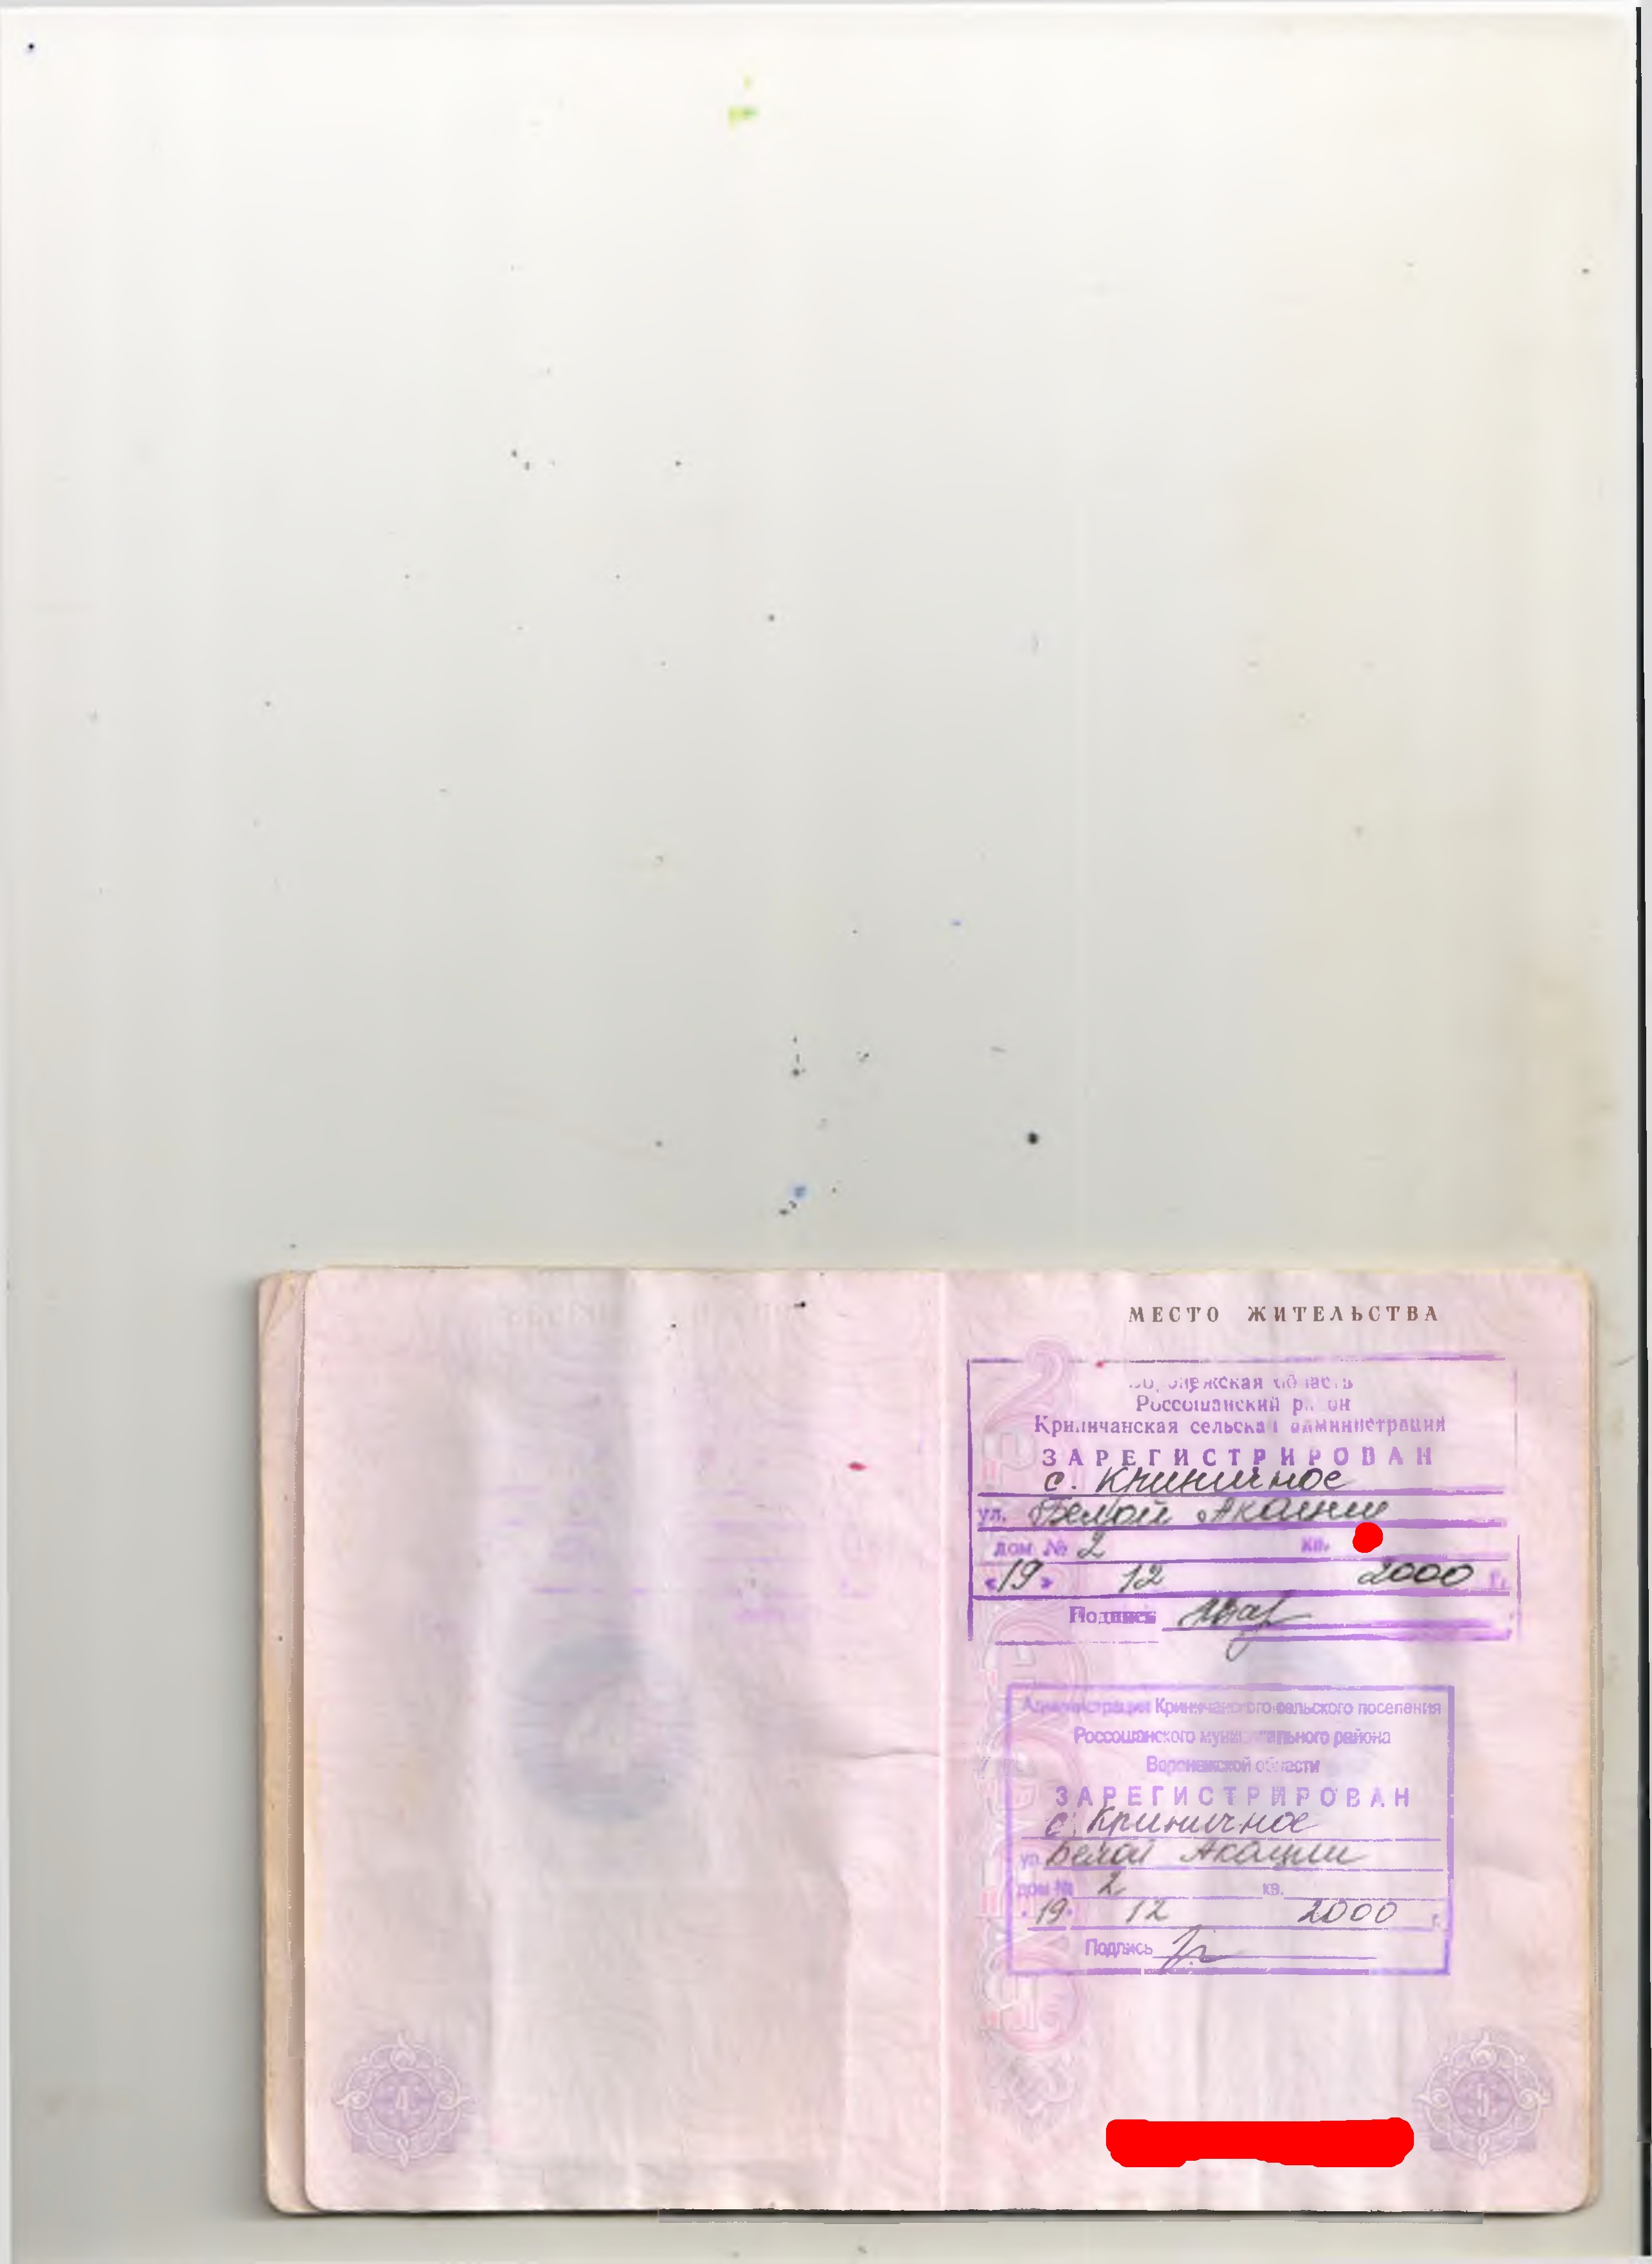 МЕСТО ЖИТЕЛЬСТВА
Россошанский
Криничанская сельская администрация
ЗАРЕГИСТРИРОВАН
с. Криничное
ул. Белой Акации
дом № 2 кв.
«19» 12 2000 г.
Подпись
Администрация Криничанского сельского поселения
Россошанского муниципального района
Воронежской области
ЗАРЕГИСТРИРОВАН
с. Криничное
ул. Белой Акации
дом № 2 кв.
19 12 2000 г.
Подпись
4
5